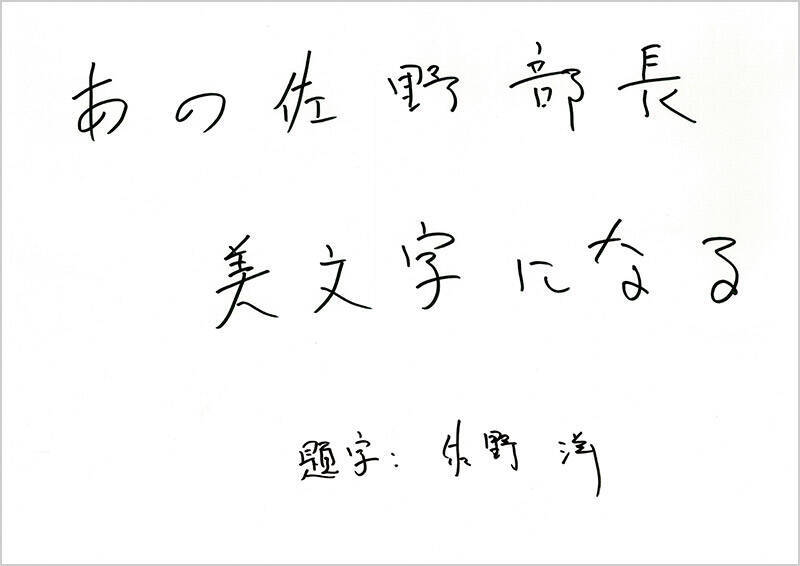 あの佐野部長
美文字になる
題字：佐野 洋